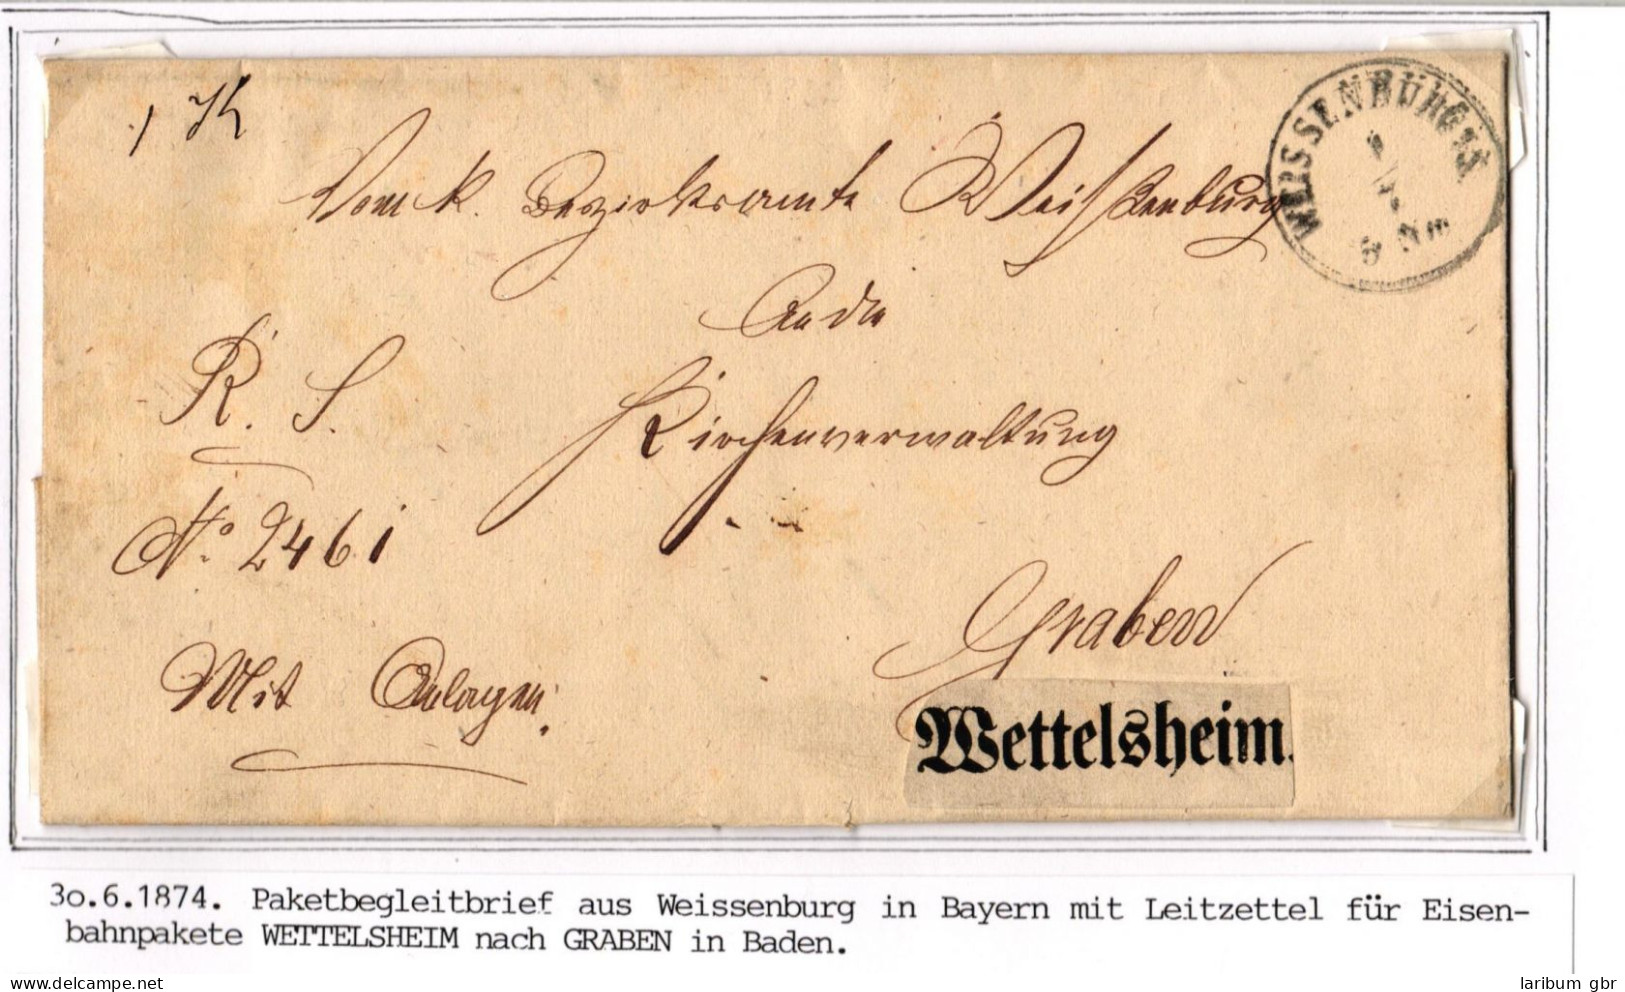 1 K
WEISSENBURG a/S
Vom k. Bezirksamte Weißenburg
An die
R. S.
Kirchenverwaltung
No. 2461
Graben
Mit Anlagen.
Wettelsheim.
3o.6.1874. Paketbegleitbrief aus Weissenburg in Bayern mit Leitzettel für Eisen-
bahnpakete WETTELSHEIM nach GRABEN in Baden.
www.delcampe.net
laribum gbr